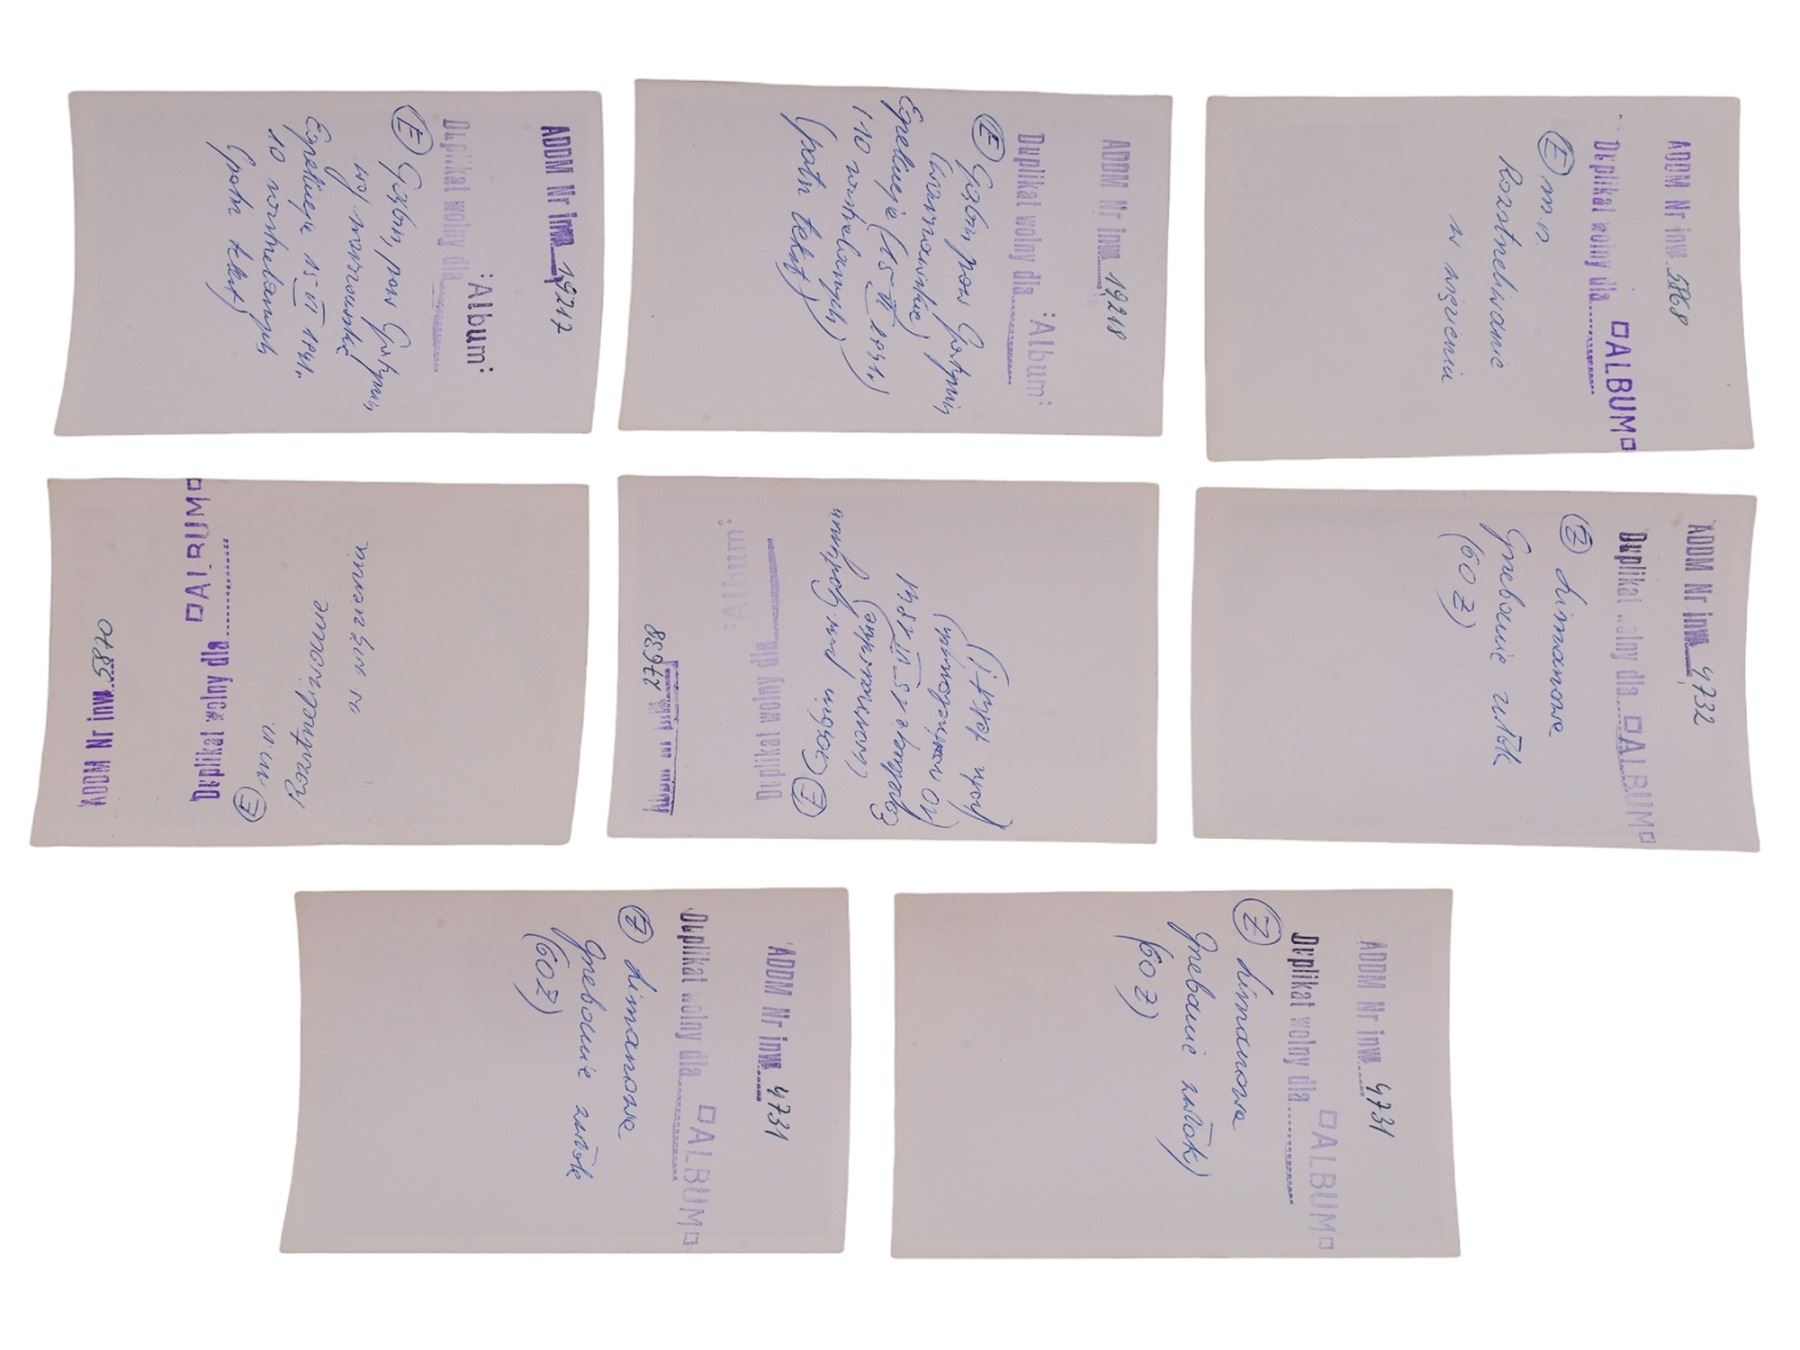 ADDM Nr inw. 19217
Album
Duplikat wolny dla
E Gąbin, pow Gostynin
woj. warszawskie
Egzekucja 15 VI 1941r.
10 rozstrzelanych
(patrz tekst)
ADDM Nr inw. 19218
Duplikat wolny dla Album
E Gąbin pow Gostynin
(warszawskie)
Egzekucja (15 VI 1941r.)
(10 rozstrzelanych)
(patrz tekst)
ADDM Nr inw. 5868
Duplikat wolny dla ALBUM
E m.n.
Rozstrzeliwanie
w więzieniu
ADDM Nr inw. 5870
Duplikat wolny dla ALBUM
E m.n.
Rozstrzeliwanie
w więzieniu
Album
Duplikat wolny dla
Gąbin pow Gostynin
(warszawskie)
Egzekucja 15 VI 1941
(10
(patrz tekst)
ADDM Nr inw. 4732
Duplikat wolny dla ALBUM
Z Limanowa
Grzebanie zwłok
(60 Ż)
ADDM Nr inw. 4731
Duplikat wolny dla ALBUM
Z Limanowa
Grzebanie zwłok
(60Ż)
ADDM Nr inw. 4731
Duplikat wolny dla ALBUM
Z Limanowa
Grzebanie zwłok)
(60 Ż)